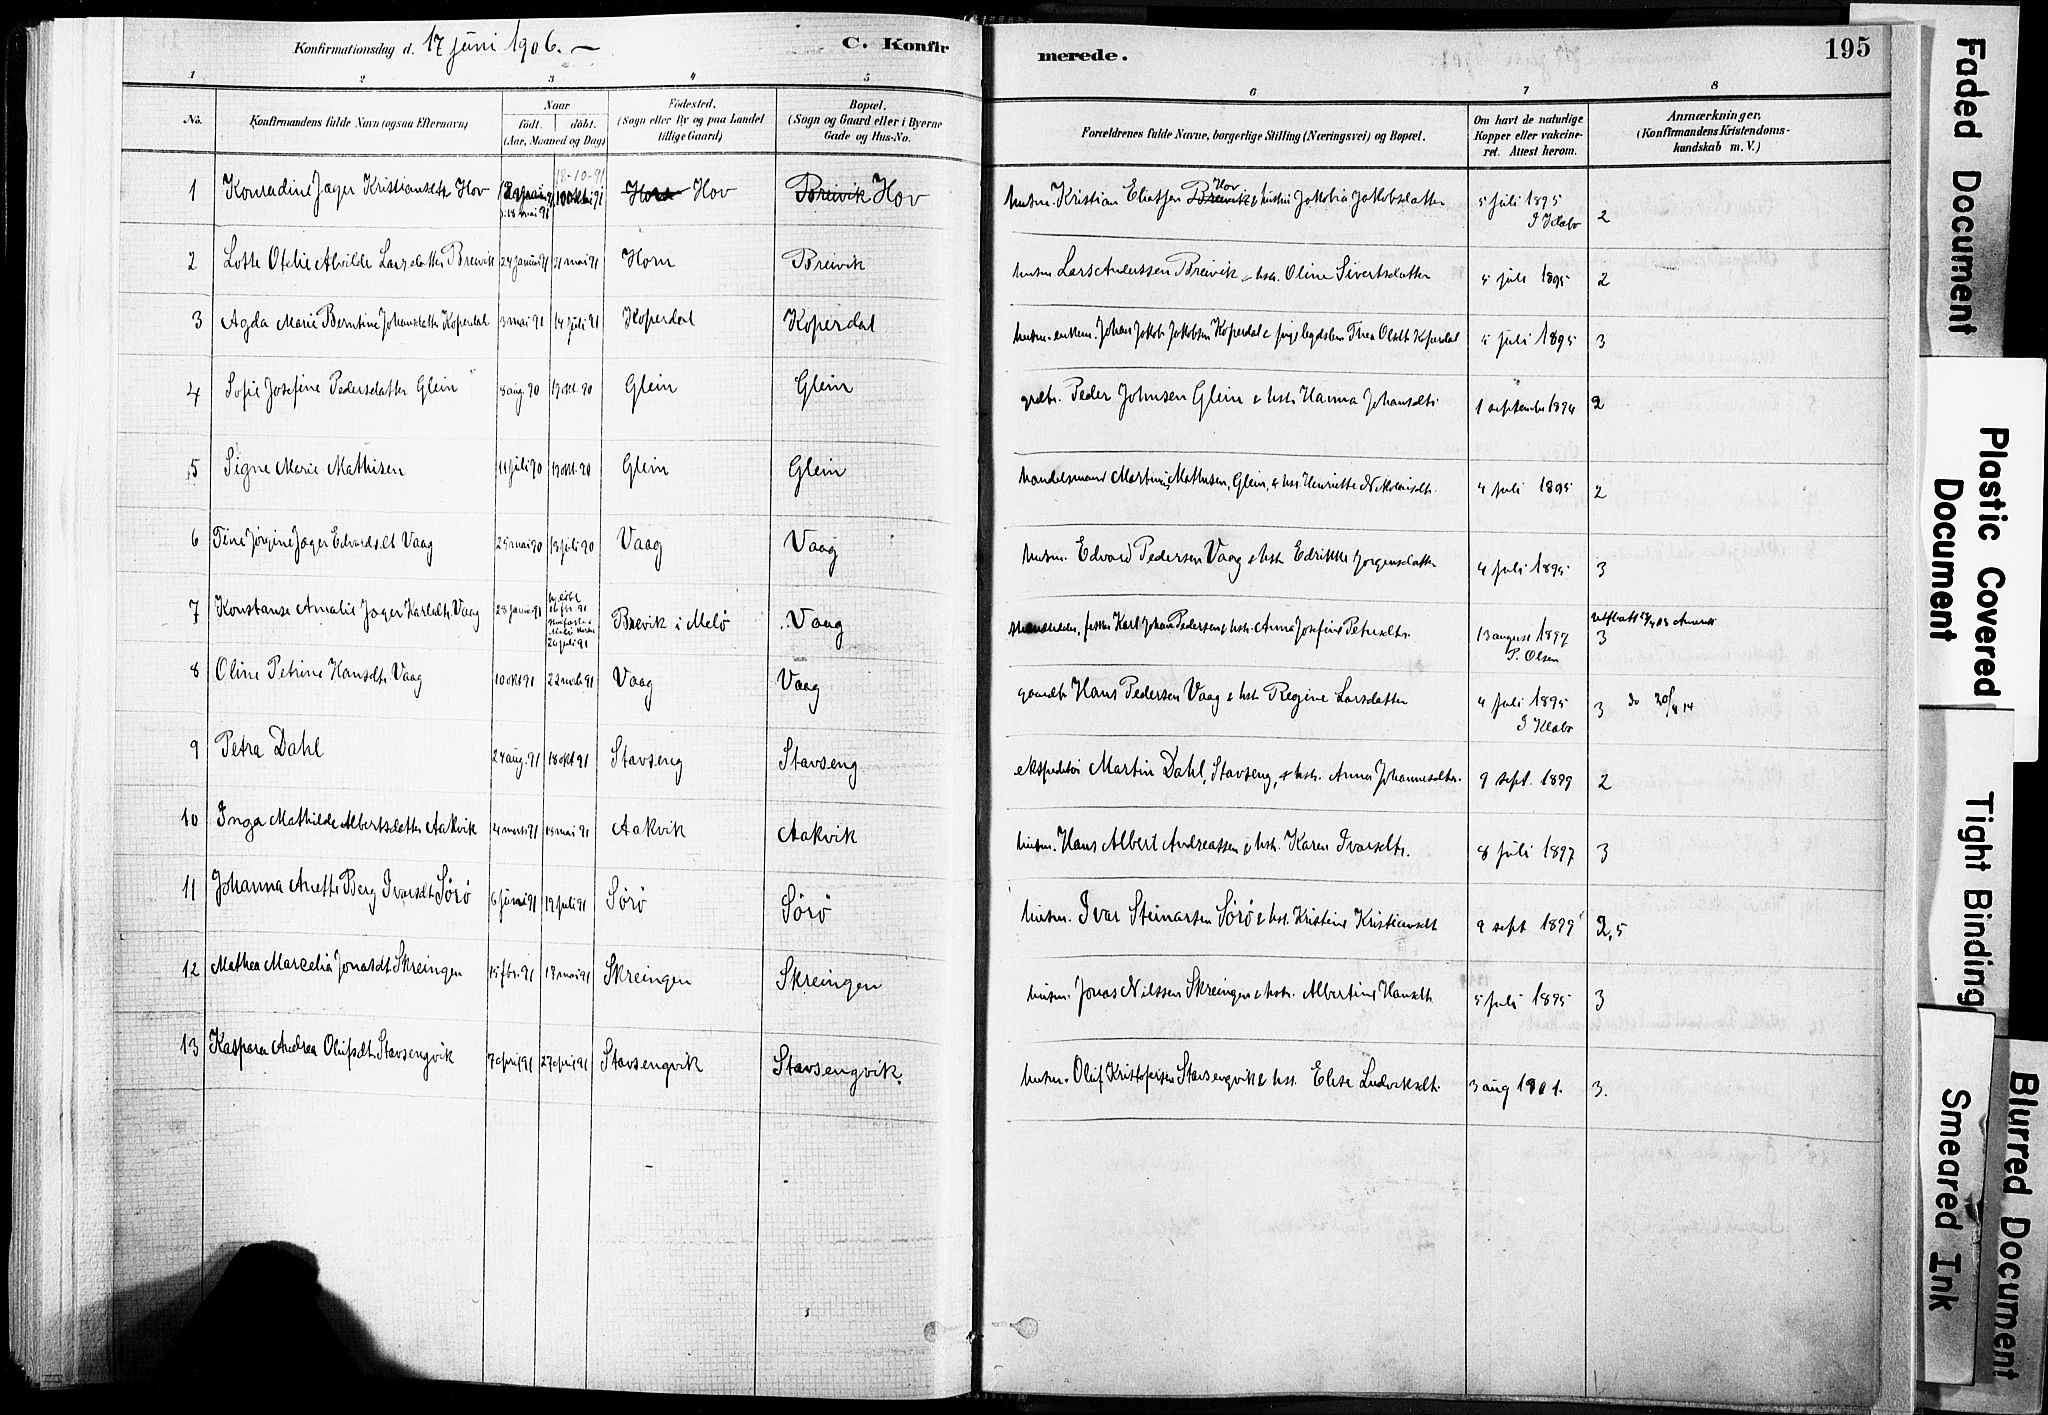 Konfirmationsdag d. 17 juni 1906. —
C. Konfirmerede.
195
1 2 3 4 5 6 7 8
No.
Konfirmandens fulde Navn (ogsaa Efternavn)
Naar
födt. döbt.
(Aar, Maaned og Dag)
Födested.
(Sogn eller By og paa Landet
tillige Gaard)
Bopæl.
(Sogn og Gaard eller i Byerne
Gade og Hus-No.
Forældrenes fulde Navne, borgerlige Stilling (Næringsvei) og Bopæl.
Om havt de naturlige
Kopper eller vakcine-
ret. Attest herom.
Anmærkninger,
(Konfirmandens Kristendoms-
kundskab m. V.)
18-10-91
1 Konradine Jager Kristiansdtr Hov Hov Breivik Hov husm. Kristian Eliassen Breivik Hov & hustru Jakobia Jakobsdatter 5 juli 1895 2
18 mai 91
2 Lotte Otelie Alvilde Larsdatter Breivik 24 januar 91 31 mai 91 Horn Breivik husm Lars Anderssen Breivik & hstr. Oline Sivertsdatter 5 juli 1895 2
3 Agda Marie Berntine Johansdatter Koperdal 3 mai 91 14 juli 91 Koperdal Koperdal husm. enkem. Johan Jakob Jakobsen Koperdal & pige Thea Olsdt Koperdal 5 juli 1895 3
4 Sofie Josefine Pedersdatter Glein 8 aug. 90 19 okt. 90 Glein Glein grdbr. Peder Johnsen Glein & hstr Hanna Johansdtr 1 september 1894 2
5 Signe Marie Mathisen 11 juli 90 19 okt. 90 Glein Glein handelsmand Martinus Mathisen, Glein, & hstr Henriette Nikolaisdtr. 4 juli 1895 2
6 Tine Jørgine Jager Edvardsdt Vaag 25 mai 90 13 juli 90 Vaag Vaag husm. Edvard Pedersen Vaag & hstr Edrikke Jørgensdatter 4 juli 1895 3
7 Konstanse Amalie Jager Karlsdtr. Vaag 28 januar 91 Breivik i Melö Vaag Karl Johan Pedersen & hstr. Anna Josefine Petersdtr. 13 august 1897 3
26 juli 91
P. Olsen
8 Oline Petrine Hansdtr Vaag 10 okt 91 22 novb 91 Vaag Vaag gaardbr Hans Pedersen Vaag & hstr Regine Larsdatter 4 juli 1895 3 do 20/4 14
9 Petra Dahl 24 aug. 91 18 okt 91 Stavseng Stavseng ekspeditör Martin Dahl, Stavseng, & hstr. Anna Johannesdtr. 9 sept. 1899 2
10 Inga Mathilde Albertsdatter Aakvik 4 marts 91 18 mai 91 Aakvik Aakvik husm. Hans Albert Andreassen & hstr. Karen Ivarsdtr. 8 juli 1897 3
11 Johanna Anette Berg Ivarsdt. Sørø 6 juni 91 19 juli 91 Sørø Sørø husm. Ivar Steinarsen Sørø & hstr. Kristine Kristiansdt 9 sept 1899 2,5
12 Mathea Marcelia Jonasdt. Skreingen 15 fbr. 91 18 mai 91 Skreingen Skreingen husm. Jonas Nilssen Skreingen & hstr. Albertine Hansdt. 5 juli 1895 3
13 Kaspara Andrea Olufsdt. Stavsengvik 7 april 91 27 april 91 Stavsengvik Stavsengvik. husm. Oluf Kristofersen Stavsengvik & hst. Elise Ludviksdt. 3 aug 1901. 3.
Faded Document
Plastic Covered
Document
Tight Binding
Blurred Document
Smeared Ink